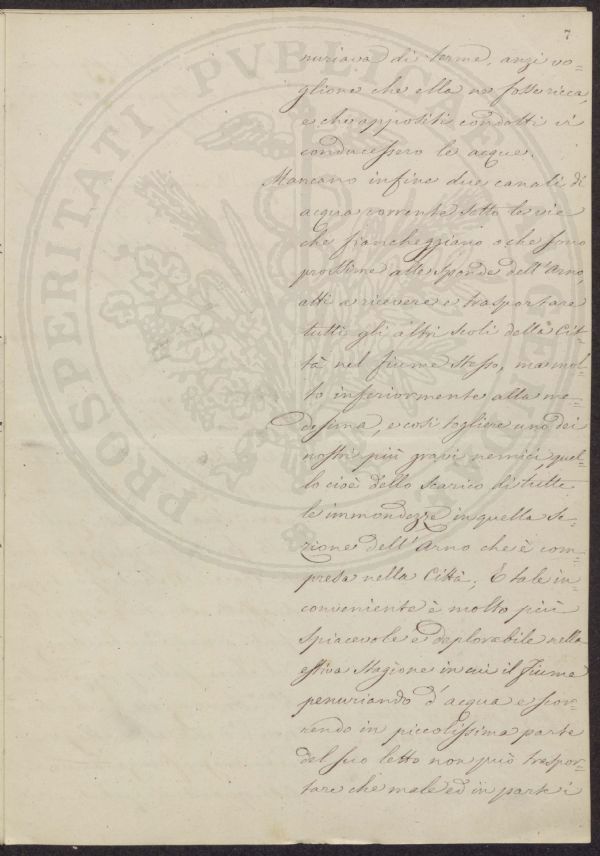 7
nuriava di terme, anzi vo=
gliono che ella ne fosse ricca,
e che appositi condotti vi
conducessero le acque.
Mancano infine due canali di
acqua corrente sotto le vie
che fiancheggiano o che sono
prossime alle sponde dell'Arno,
atti a ricevere e trasportare
tutti gli altri scoli della Cit=
tà nel fiume stesso, ma mol=
to inferiormente alla me=
desima, e così togliere uno dei
nostri più gravi nemici, quel=
lo cioè dello scarico di tutte
le immondezze in quella se=
zione dell'Arno che è com=
presa nella Città; È tale in=
conveniente è molto più
spiacevole e deplorabile nella
estiva stagione in cui il fiume
penuriando d'acqua e scor=
rendo in piccolissima parte
del suo letto non può traspor=
tare che male ed in parte i
PROSPERITATI PVBLICAE